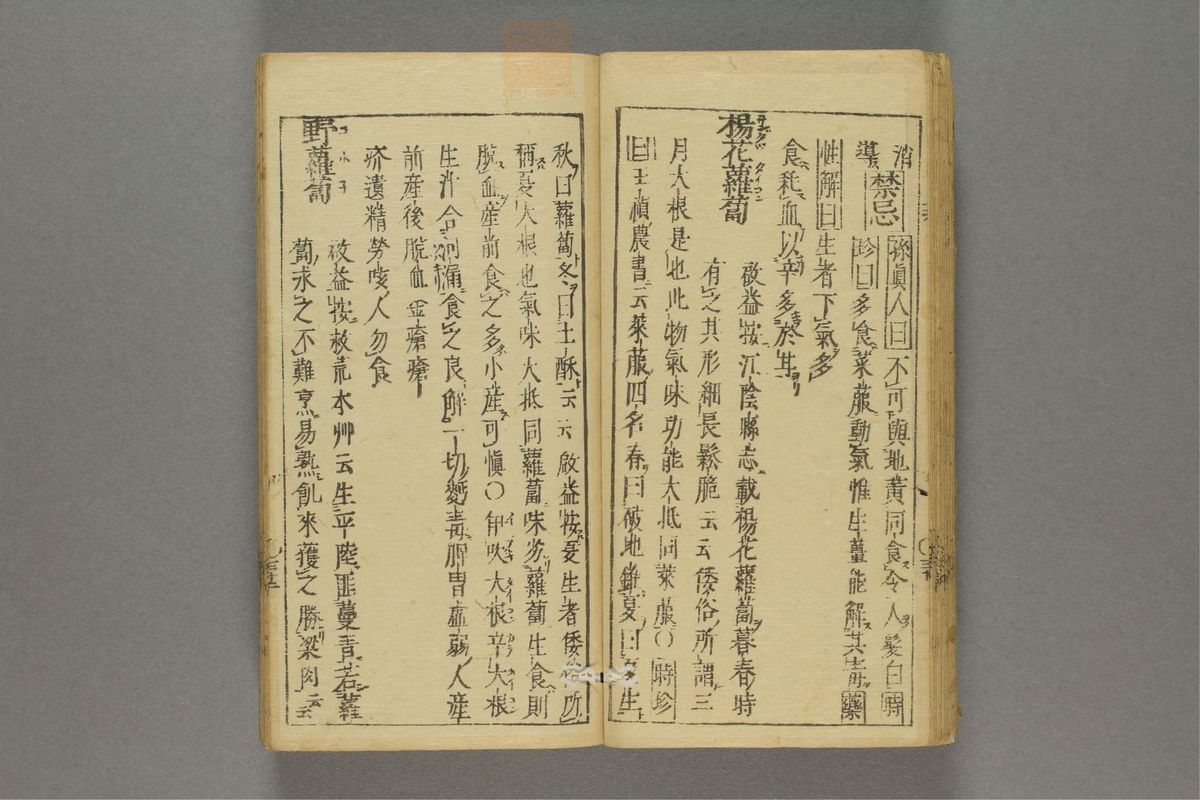 消導 禁忌 孫眞人曰 不可與地黄同食令人髮白 時
珍曰 多食萊菔動氣惟生薑能解其毒 藥
性解曰 生者下氣多
食耗血以辛多於甘
楊花蘿蔔 啟益按江陰縣志載楊花蘿蔔暮春時
有之其形細長鬆脆云云倭俗所謂三
月大根是也此物氣味功能大抵同萊菔〇 時珍
曰 王禎農書云萊菔四名春曰破地錐夏曰夏生
秋曰蘿蔔冬曰土酥云云啟益按夏生者倭俗所
稱夏大根也氣味大抵同蘿蔔味劣蘿蔔生食則
脱血産前食之多小産可愼〇伊吹大根辛大根
生汁合食之良解一切麪毒脾胃虚弱人産
前産後脱血金瘡
疥遺精勞咳人勿食
野蘿蔔 啟益按救荒本艸云生平陸匪蔓青若蘿
蔔求之不難烹易熟飢來獲之勝粱肉云云